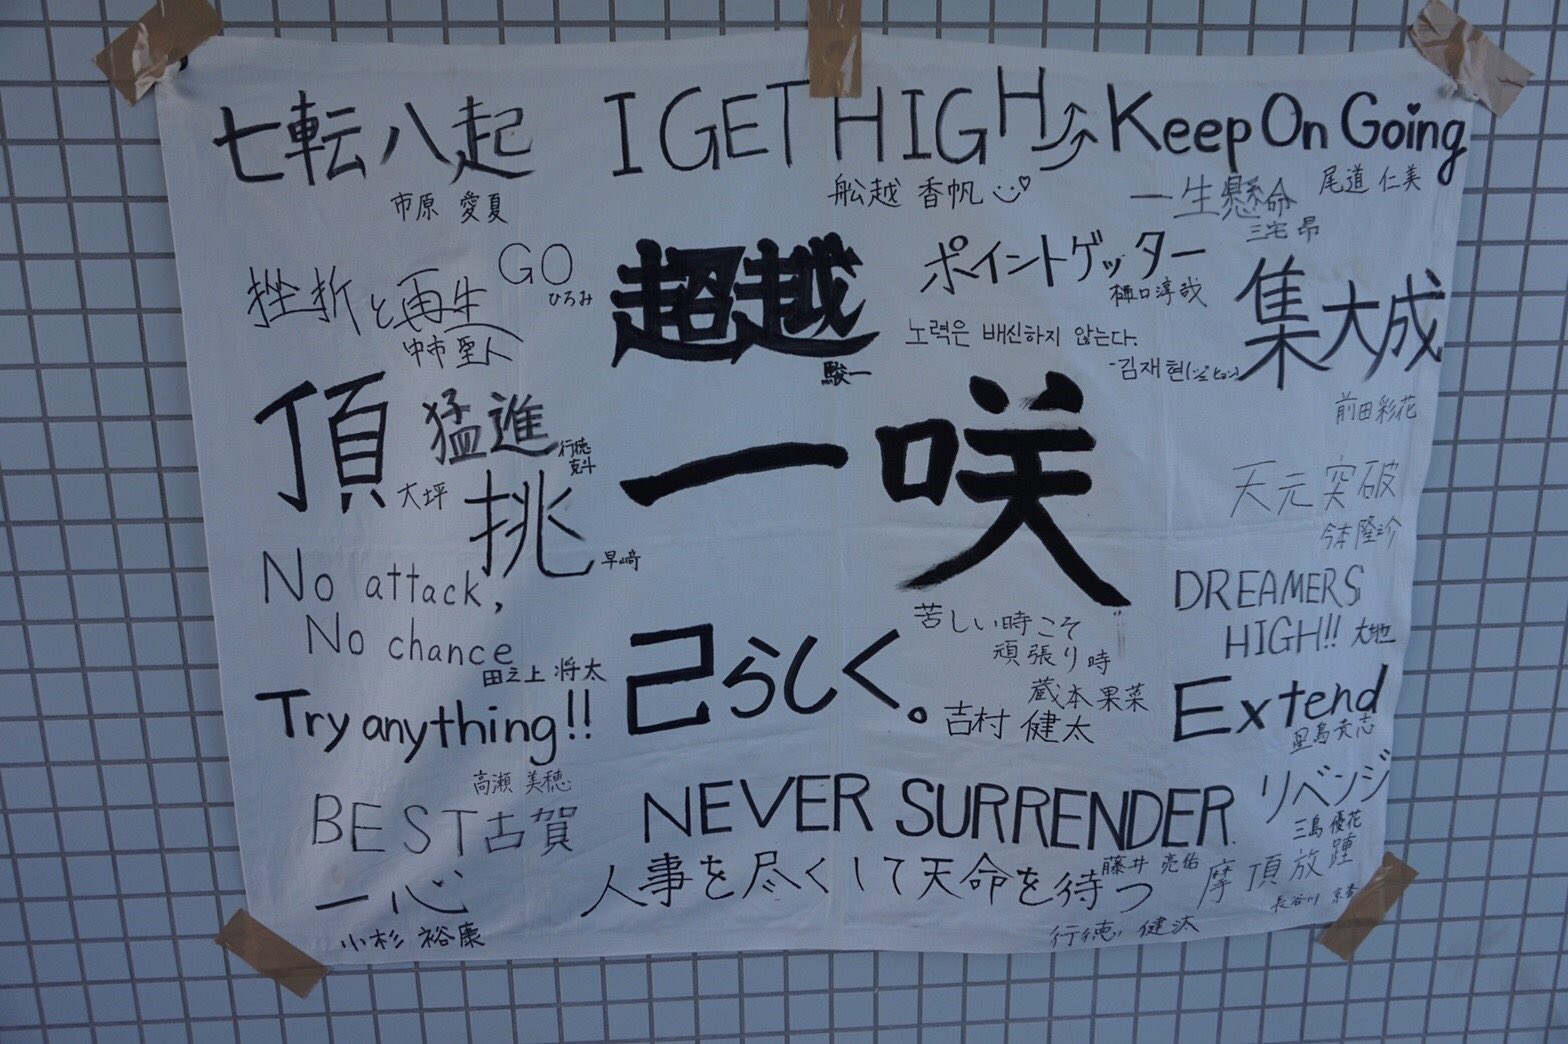 七転八起
市原 愛夏
I GET HIGH
船越 香帆
Keep On Going
尾道 仁美
一生懸命
三宅 昂
挫折と再生
中市 聖人
GO
ひろみ
超越
駿一
ポイントゲッター
樋口淳哉
노력은 배신하지 않는다.
-김재현
集大成
前田彩花
頂
大坪
猛進
行徳
挑
早崎
一咲
天元突破
DREAMERS
HIGH!! 大地
No attack,
No chance
田之上 将太
己らしく。
吉村 健太
苦しい時こそ
頑張り時
蔵本果菜
Extend
Try anything!!
高瀬 美穂
リベンジ
三島 優花
BEST古賀
NEVER SURRENDER.
藤井 亮佑
一心
小杉 裕康
人事を尽くして天命を待つ
行徳 健汰
摩頂放踵
長谷川